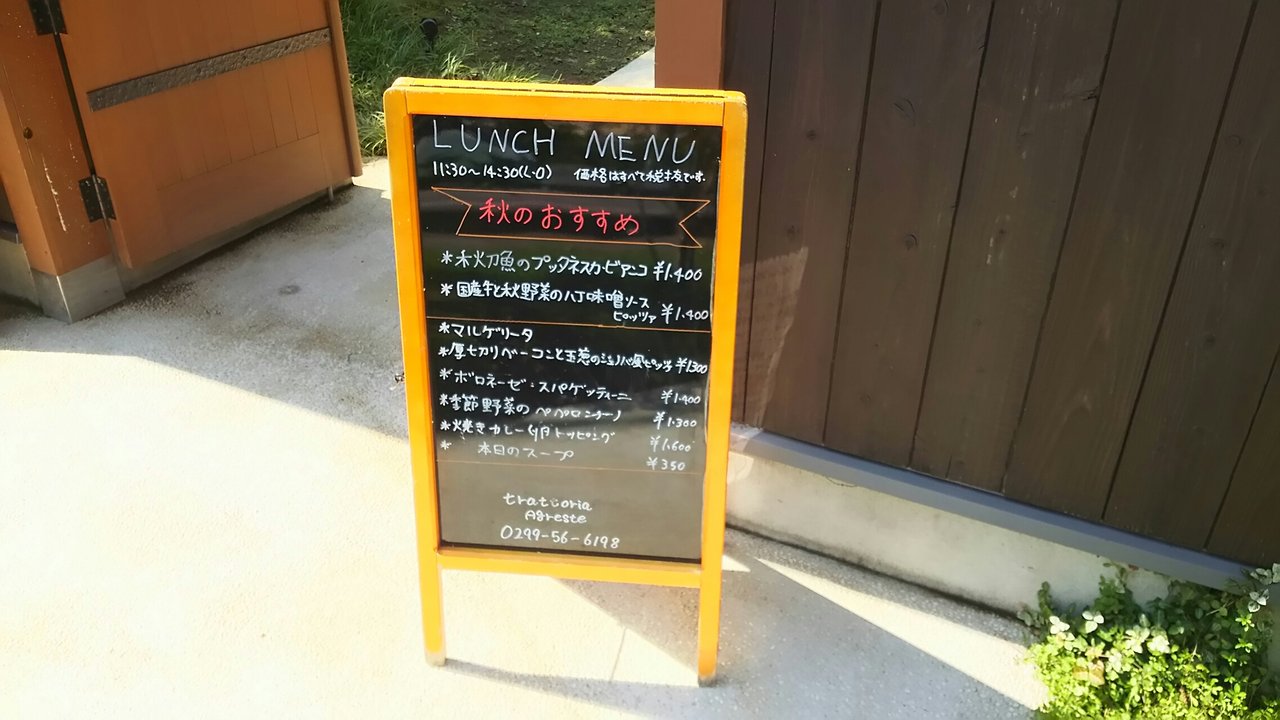 LUNCH MENU
11:30〜14:30(L・O) 価格はすべて税抜です。
秋のおすすめ
*秋刀魚のプッタネスカ・ビアンコ ¥1.400
*国産牛と秋野菜の八丁味噌ソース
ピッツァ ¥1.400
*マルゲリータ
*厚切りベーコンと玉葱の風ピッツァ ¥1300
*ボロネーゼ:スパゲッティーニ ¥1.400
*季節野菜のペペロンチーノ ¥1.300
*焼きカレー 卵トッピング ¥1.600
* 本日のスープ ¥350
trattoria
Agreste
0299-56-6198